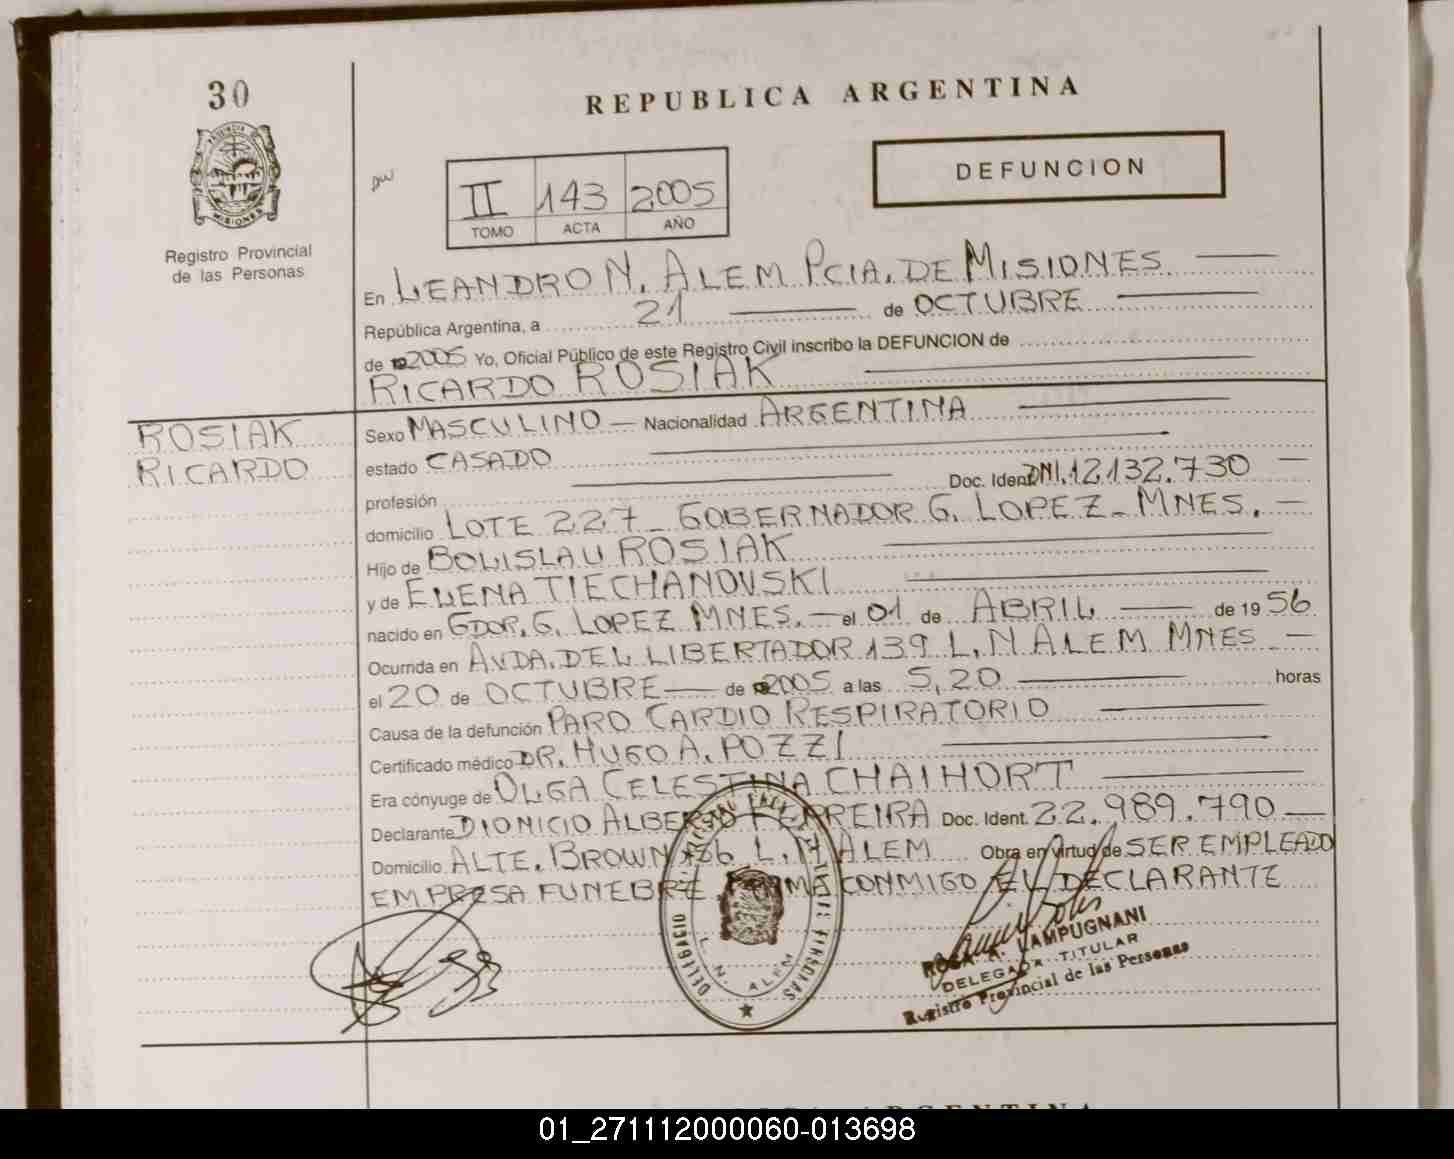 30
REPUBLICA ARGENTINA
PROVINCIA DE
MISIONES
Registro Provincial
de las Personas
DEFUNCION
II 143 2005
TOMO ACTA AÑO
En LEANDRO N. ALEM PCIA. DE MISIONES
República Argentina, a 21 de OCTUBRE
de 2005 Yo, Oficial Público de este Registro Civil inscribo la DEFUNCION de
RICARDO ROSIAK
ROSIAK
RICARDO
Sexo MASCULINO — Nacionalidad ARGENTINA
estado CASADO
profesión Doc. Ident. DNI. 12.132.730 —
domicilio LOTE 227 - GOBERNADOR G. LOPEZ - MNES. —
Hijo de BOLISLAU ROSIAK
y de ELENA TIECHANOVSKI
nacido en GDOR. G. LOPEZ MNES. — el 01 de ABRIL — de 19 56
Ocurrida en AVDA. DEL LIBERTADOR 139 L. N. ALEM MNES —
el 20 de OCTUBRE — de 2005 a las 5,20 — horas
Causa de la defunción PARO CARDIO RESPIRATORIO
Certificado médico DR. HUGO A. POZZI
Era cónyuge de OLGA CELESTINA CHAIHORT
Declarante DIONICIO ALBERTO FERREIRA Doc. Ident. 22.989.790 —
Domicilio ALTE. BROWN L. N. ALEM Obra en virtud de SER EMPLEADO
EMPRESA FUNEBRE. FIRMA CONMIGO EL DECLARANTE
L. N. ALEM
ROSA A. LAMPUGNANI
DELEGADA TITULAR
Registro Provincial de las Personas
ARGENTINA
01_271112000060-013698